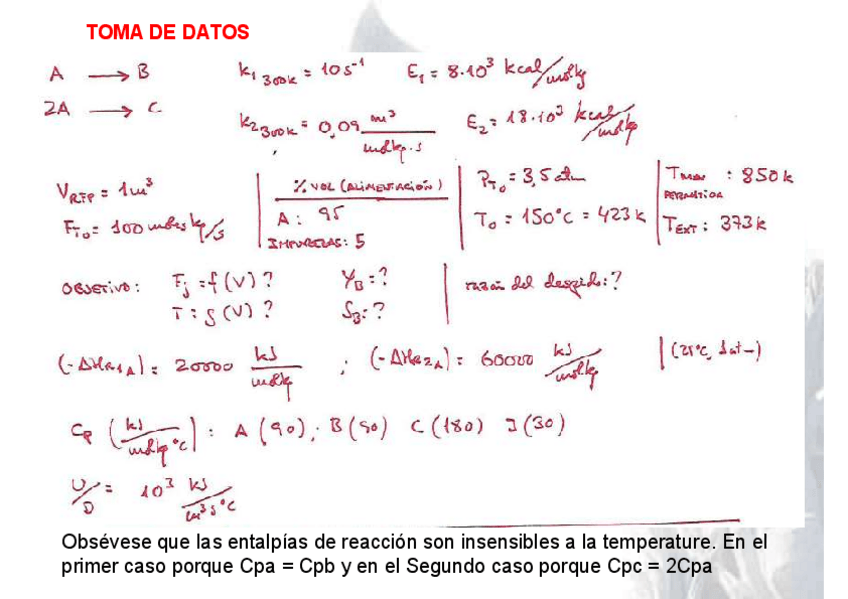 TOMA DE DATOS
A → B    k₁ 300k = 10 s⁻¹    E₁ = 8·10³ kcal/molkg
2A → C    k₂ 300k = 0,09 m³/molkg·s    E₂ = 18·10³ kcal/molkg
V RFP = 1 m³    % VOL (ALIMENTACIÓN)    P_T₀ = 3,5 atm    T MAX PERMITIDA : 850 k
F_T₀ = 100 moles kg/s    A : 95    T₀ = 150°C = 423 k    T EXT : 373 k
IMPUREZAS : 5
OBJETIVO : Fj = f(V) ?    Y_B = ?    razón del despido : ?
T = g(V) ?    S_B = ?
(-ΔH_R1A) = 20000 kJ/molkg ; (-ΔH_R2A) = 60000 kJ/molkg    (25°C, 1 at-)
Cp (kJ/molkg °C) : A (90) ; B (90) C (180) I (30)
U/D = 10³ kJ/m³ s °C
Obsévese que las entalpías de reacción son insensibles a la temperature. En el
primer caso porque Cpa = Cpb y en el Segundo caso porque Cpc = 2Cpa